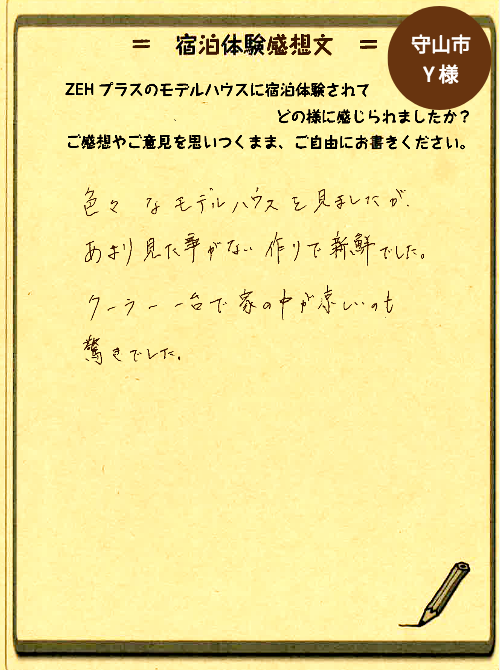 ＝ 宿泊体験感想文 ＝
守山市
Y様
ZEH プラスのモデルハウスに宿泊体験されて
どの様に感じられましたか？
ご感想やご意見を思いつくまま、ご自由にお書きください。
色々なモデルハウスを見ましたが、
あまり見た事がない作りで新鮮でした。
クーラー一台で家の中が涼しいのも
驚きでした。